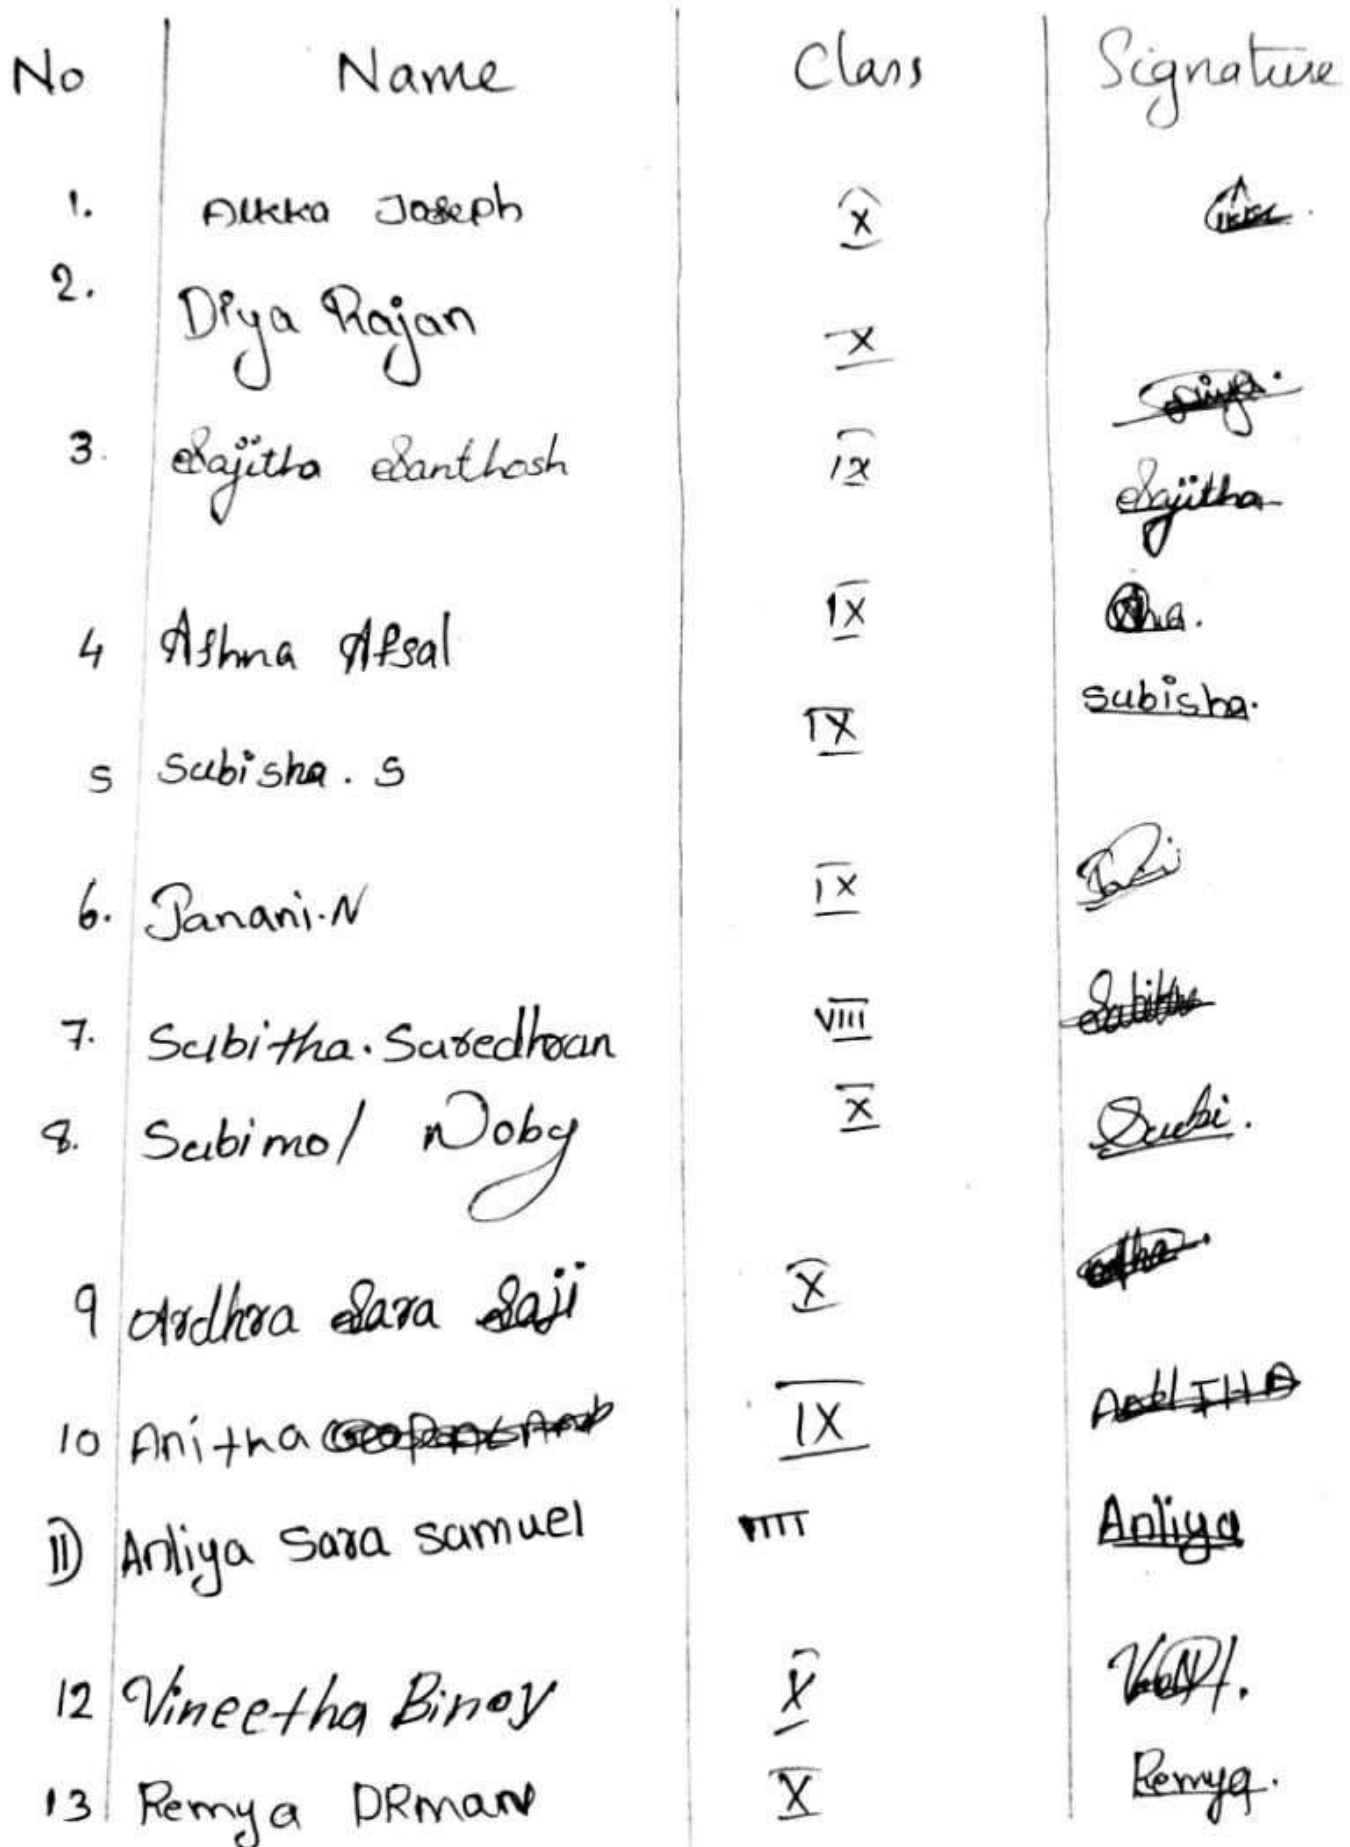 No Name Class Signature
1. Alkka Joseph X
2. Diya Rajan X Diya.
3. Sajitha Santhosh IX Sajitha
4 Ashna Afsal IX
5 Subisha . S IX Subisha.
6. Janani.N IX
7. Subitha. Suredhran VIII Subitha
8. Subimol Noby X Subi.
9 Ardhra Sara Saji X
10 Anitha IX
11) Anliya Sara Samuel VIII Anliya
12 Vineetha Binoy X
13 Remya DRman X Remya.